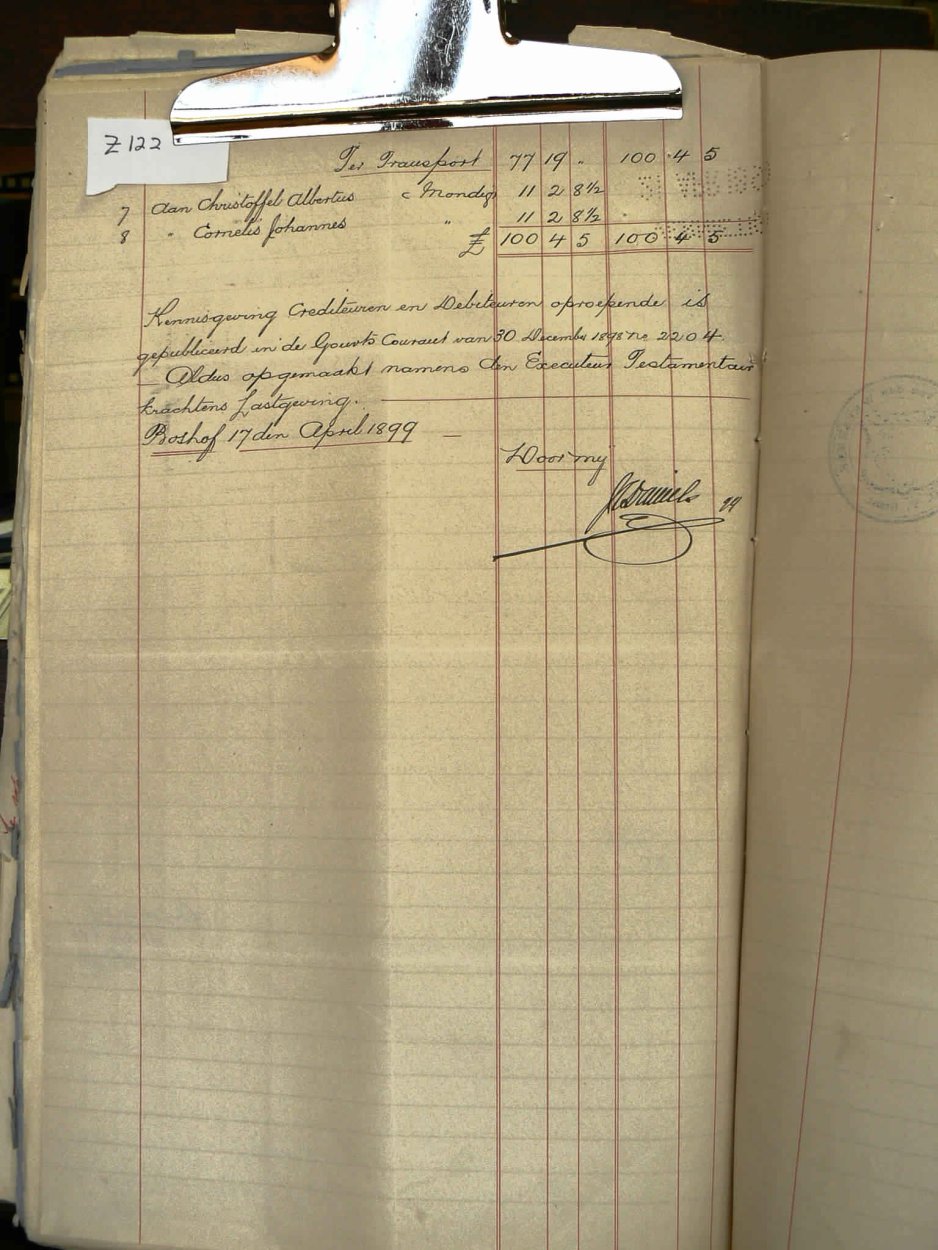 Z 122
Per Transport 77 19 " 100 4 5
7 Aan Christoffel Albertus Mondig 11 2 8 1/2
8 " Cornelis Johannes " 11 2 8 1/2
£ 100 4 5 100 4 5
Kennisgeving Crediteuren en Debiteuren oproepende is
gepubliceerd in de Gouvts Courant van 30 December 1898 No 2204.
— Aldus opgemaakt namens den Executeur Testamentair
krachtens Lastgeving. —
Boshof 17 den April 1899 —
Door my